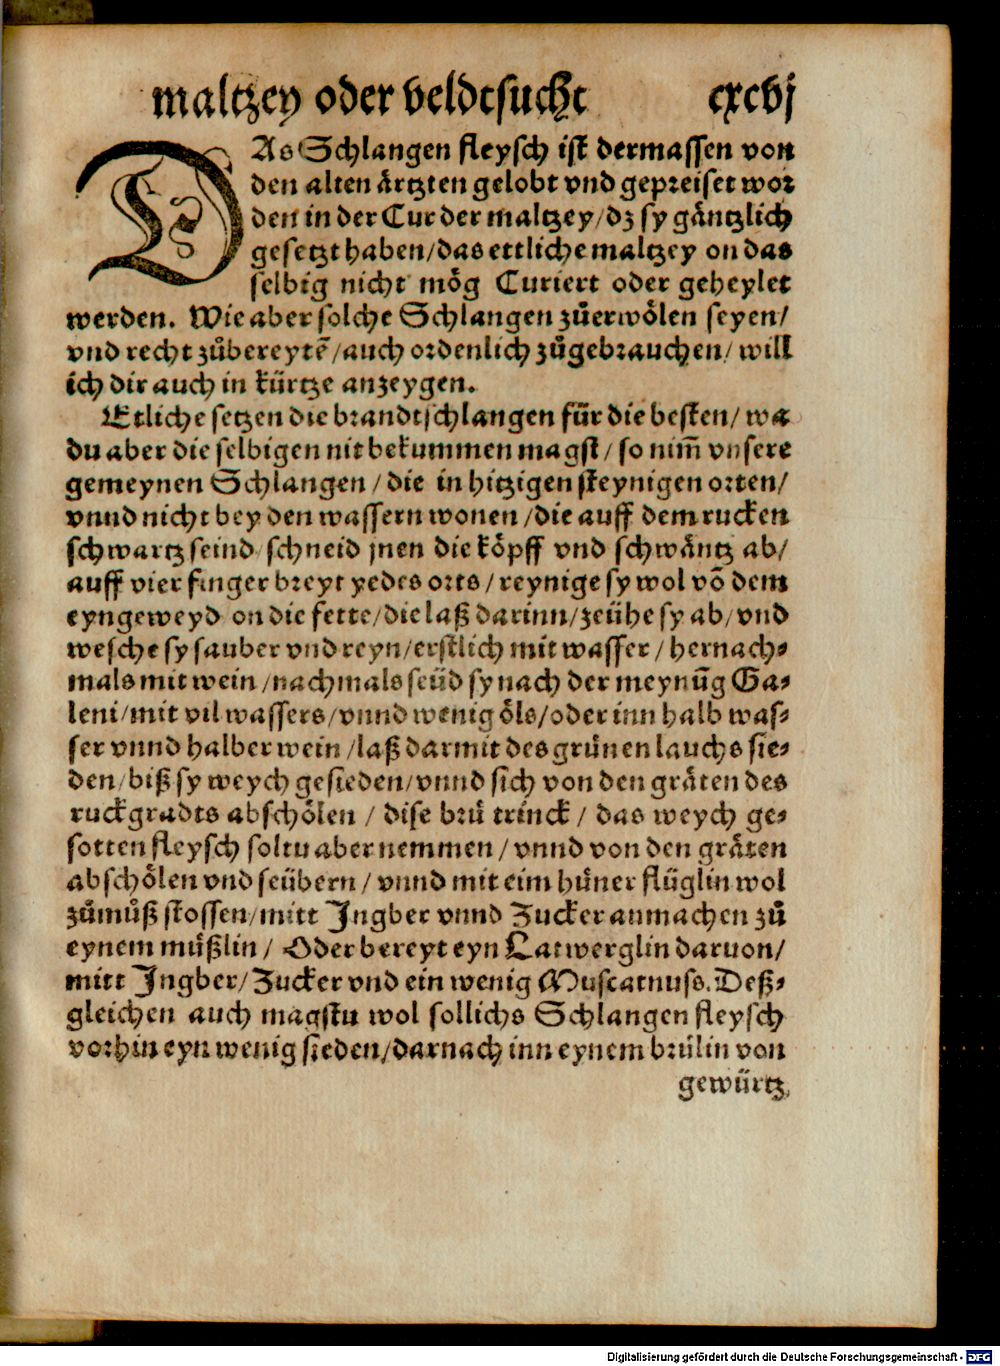 maltzey oder veldtsucht cxcvj
DAs Schlangen fleysch ist dermassen von
den alten ärtzten gelobt vnd gepreiset wor
den in der Cur der maltzey/dz sy gäntzlich
gesetzt haben/das ettliche maltzey on das
selbig nicht mög Curiert oder geheylet
werden. Wie aber solche Schlangen zůerwölen seyen/
vnd recht zůbereytē/auch ordenlich zůgebrauchen/will
ich dir auch in kürtze anzeygen.
Etliche setzen die brandtschlangen für die besten/wa
du aber die selbigen nit bekummen magst/so nim̄ vnsere
gemeynen Schlangen/die in hitzigen steynigen orten/
vnnd nicht bey den wassern wonen/die auff dem rucken
schwartz seind/schneid jnen die köpff vnd schwäntz ab/
auff vier finger breyt yedes orts/reynige sy wol võ dem
eyngeweyd on die fette/die laß darinn/zeühe sy ab/vnd
wesche sy sauber vnd reyn/erstlich mit wasser/hernach⸗
mals mit wein/nachmals seüd sy nach der meynūg Ga⸗
leni/mit vil wassers/vnnd wenig öls/oder inn halb was⸗
ser vnnd halber wein/laß darmit des grünen lauchs sie⸗
den/biß sy weych gesieden/vnnd sich von den gräten des
ruckgradts abschölen/dise brü trinck/das weych ge⸗
sotten fleysch soltu aber nemmen/vnnd von den gräten
abschölen vnd seübern/vnnd mit eim hüner flüglin wol
zůmůß stossen/mitt Jngber vnnd Zucker anmachen zů
eynem müßlin/Oder bereyt eyn Latwerglin daruon/
mitt Jngber/Zucker vnd ein wenig Muscatnuss. Deß⸗
gleichen auch magstu wol sollichs Schlangen fleysch
vorhin eyn wenig sieden/darnach inn eynem brülin von
gewürtz
Digitalisierung gefördert durch die Deutsche Forschungsgemeinschaft - DFG